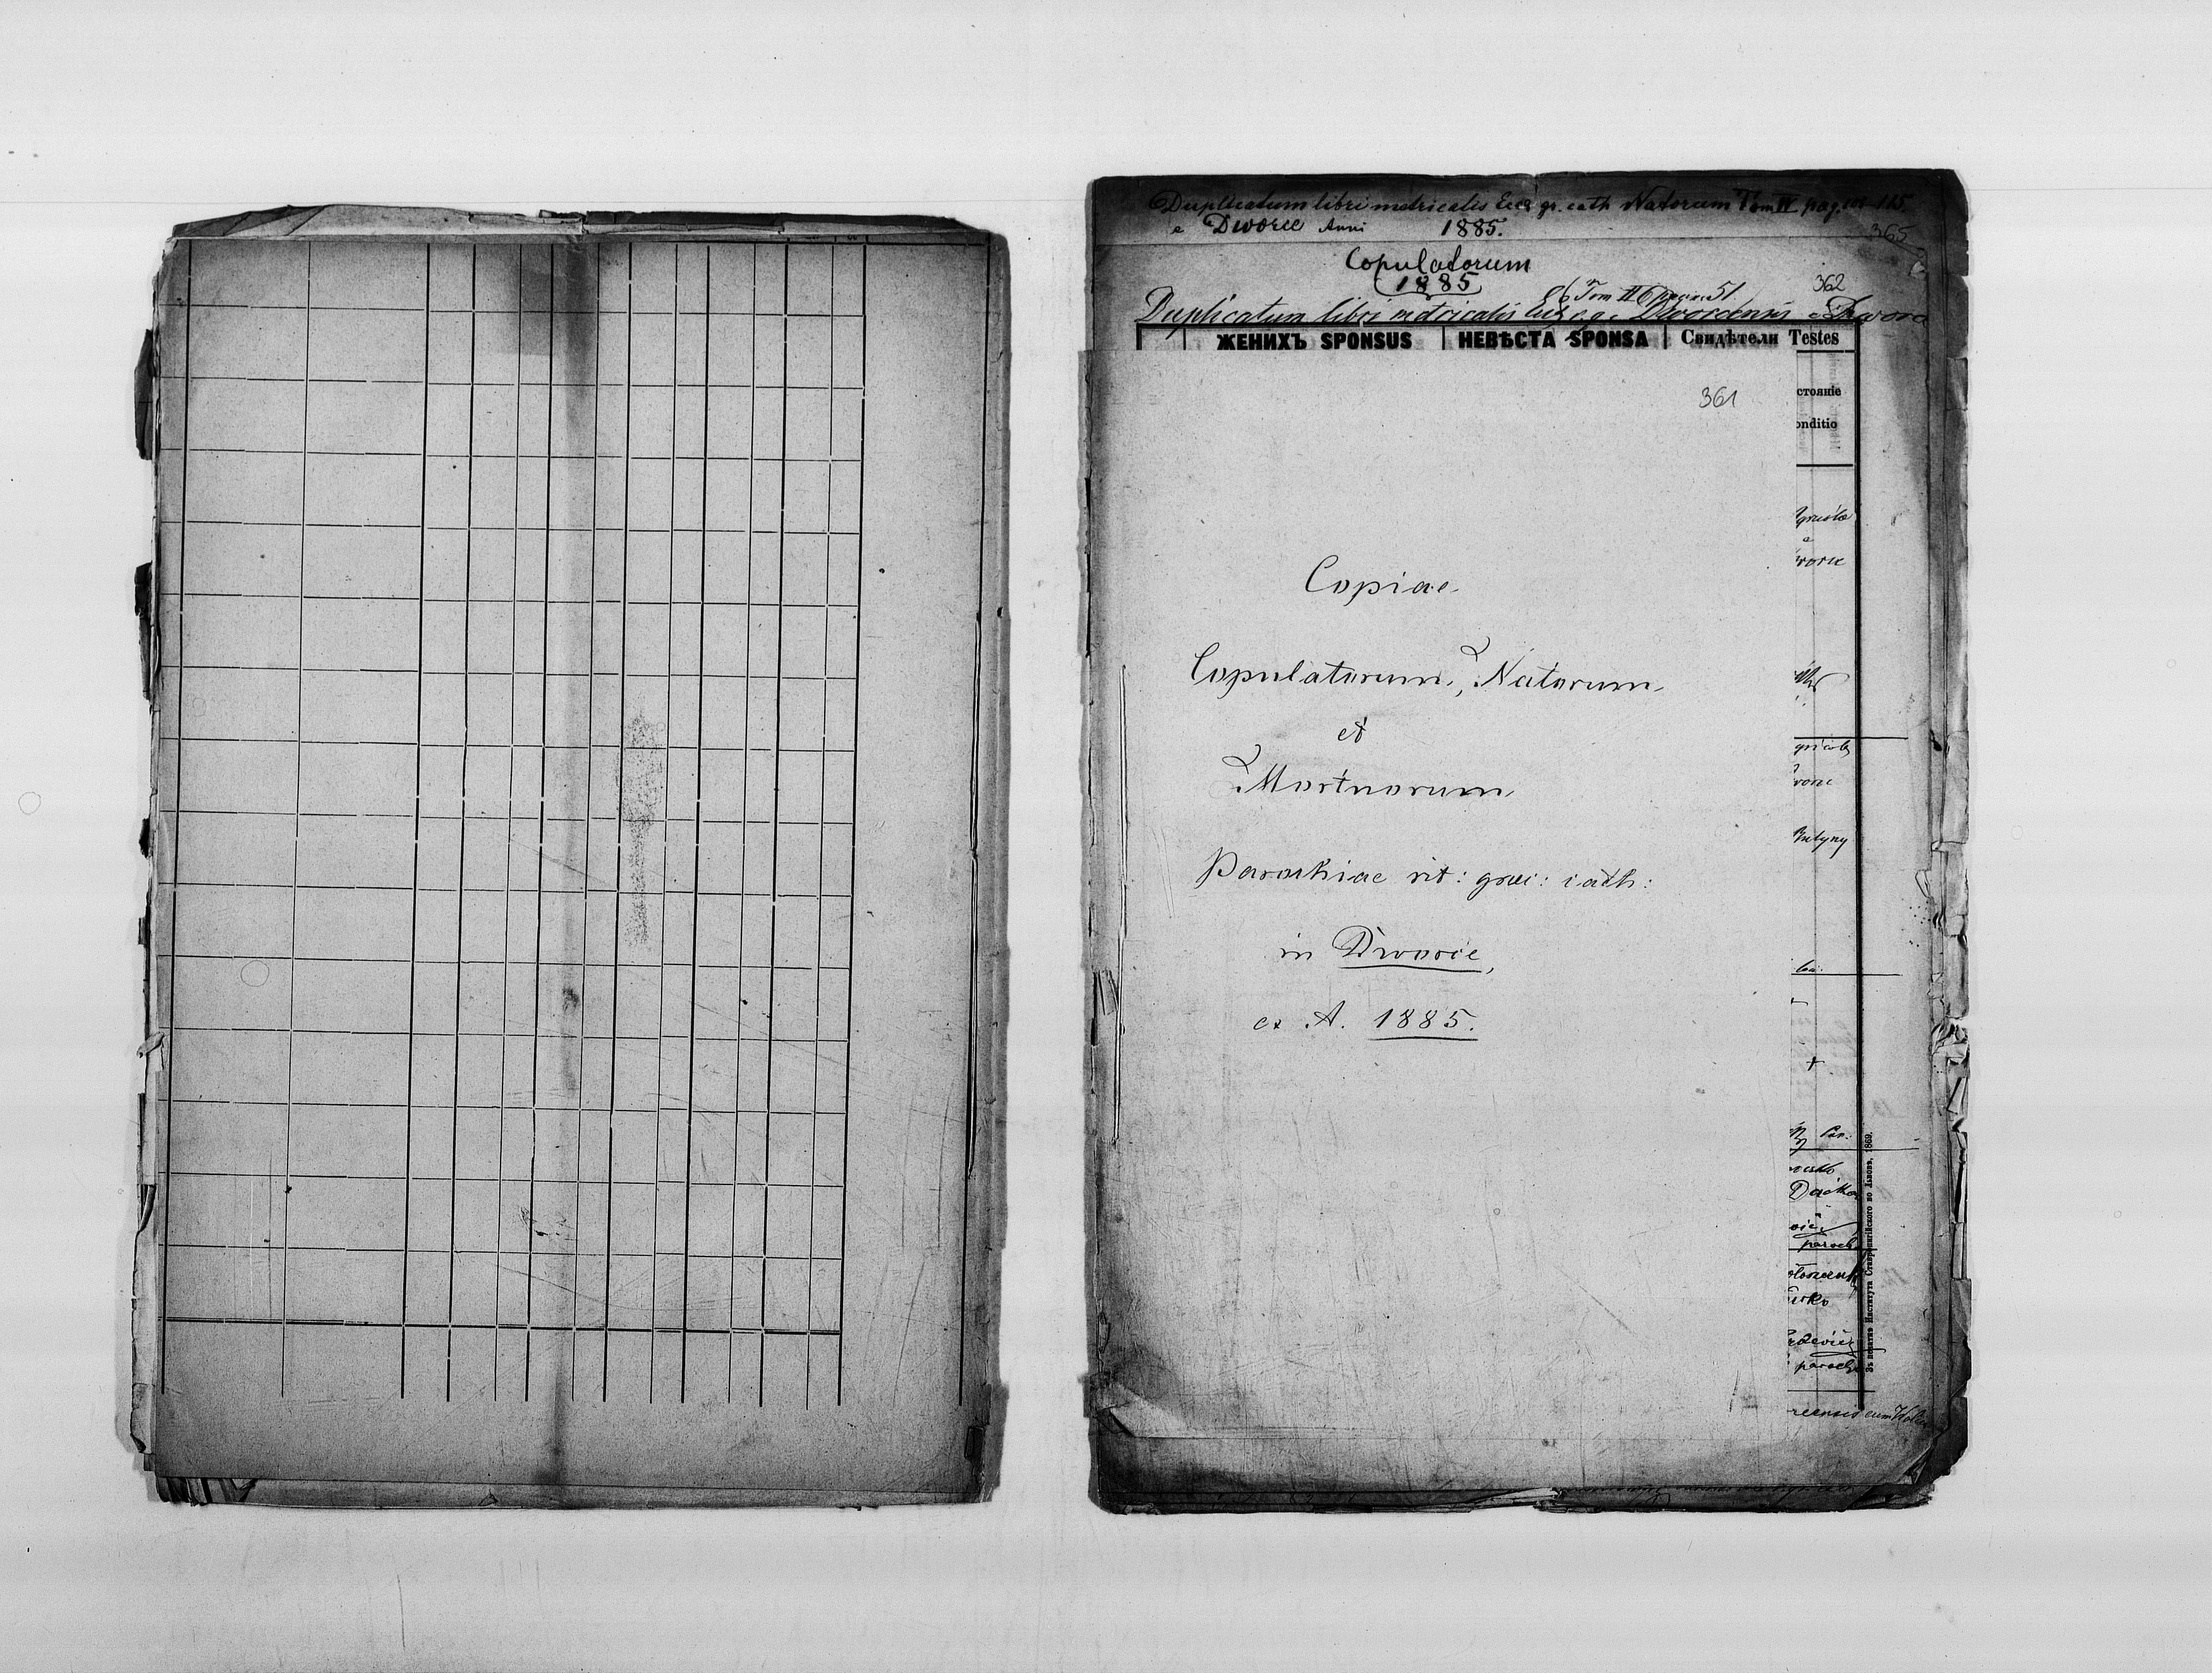 Duplicatum libri metricalis Eccl gr. cath Natorum Tom IV pag. 115.
e Dworce Anni 1885.
365
Copulatorum
1885
362
Tom II pag. 51
Duplicatum libri metricalis Dworcensis
ЖЕНИХЪ SPONSUS НЕВѢСТА SPONSA Свидѣтели Testes
361
стояніе
onditio
Copiae
Copulatorum, Natorum
et
Mortuorum
Parochiae rit: graec: cath:
in Dworce,
ex A. 1885.
Can.
Dacko
paroch
paroch
recensis cum
Въ печатнѣ Института Ставропигійского во Львовѣ, 1869.